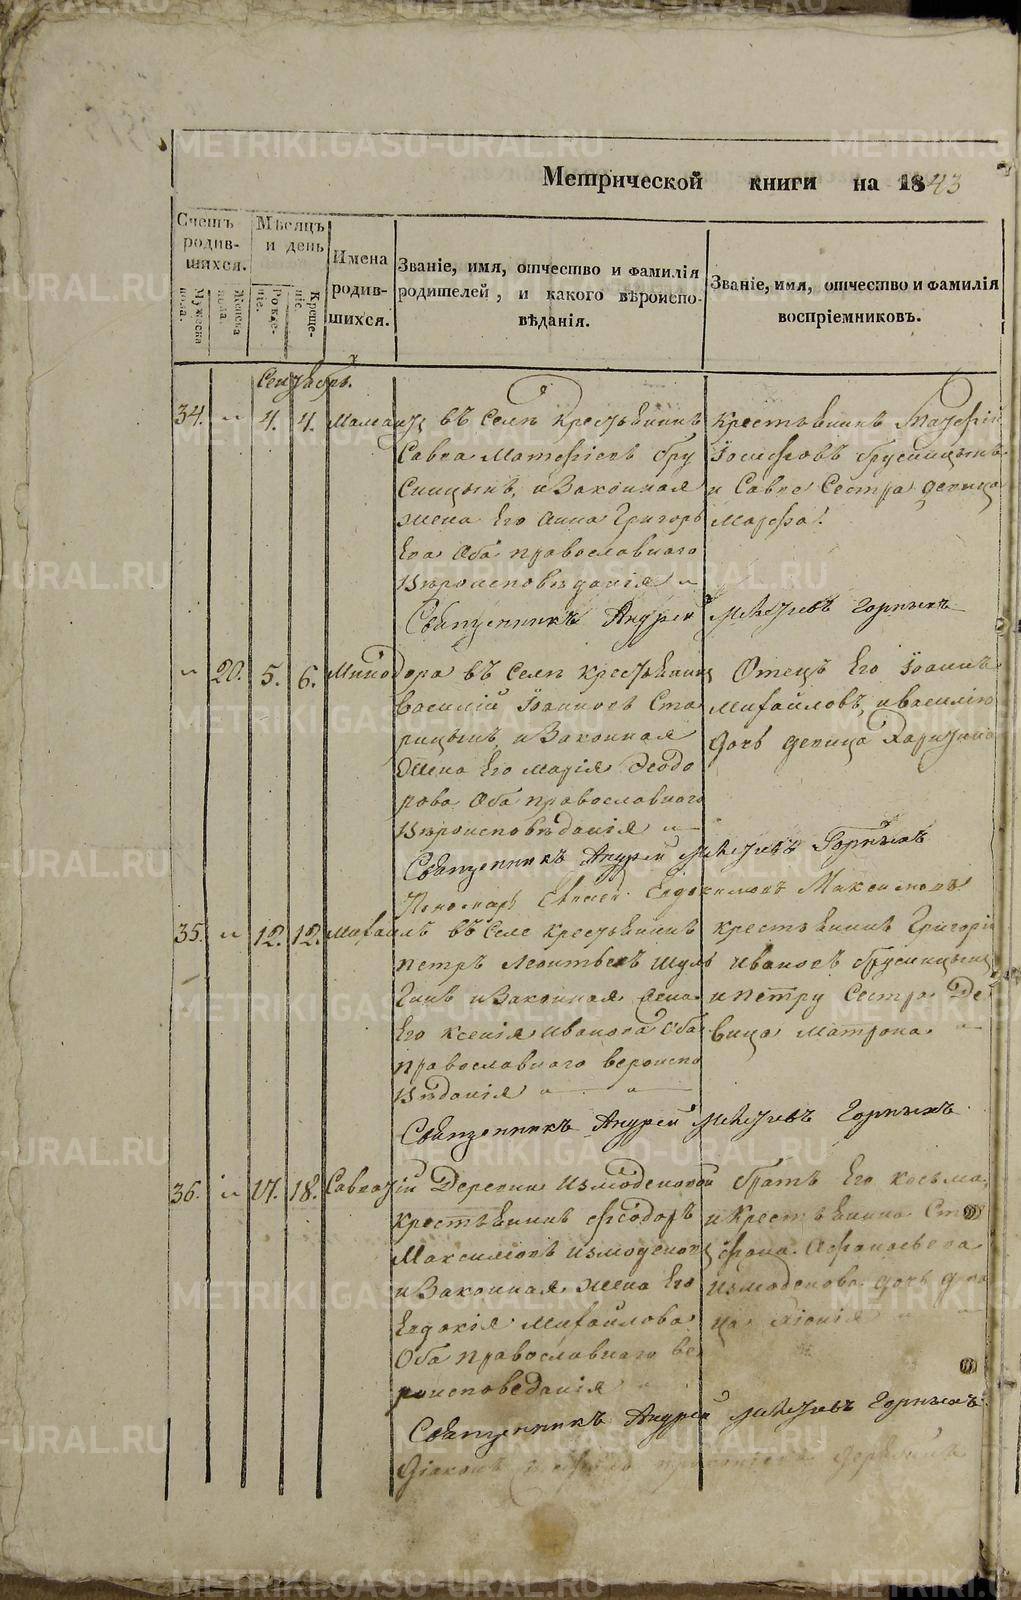 Метрической книги на 1843
Счетъ родив- шихся.
Мужеска пола.
Женска пола.
Мѣсяцъ и день
Рожде- ніе.
Креще- ніе.
Имена родив- шихся.
Званіе, имя, отчество и фамилія родителей, и какого вѣроиспо- вѣданія.
Званіе, имя, отчество и фамилія воспріемниковъ.
Сентябрь.
34. " 4. 4. Мамантъ въ Селѣ Крестьянинъ
Савва Матѳіевъ Бру
сницынъ, и Законная
жена Его Анна Григорь
Ева Оба православного
Вѣроисповѣданія
крестьянинъ
Іосифовъ Брусницынъ
и Савве Сестра девица
Марфа.
Священникъ Андрей Горныхъ
" 20. 5. 6. Минодора въ Селѣ Крестьянинъ
василій Іоанновъ Ста
рицынъ, и Законная
Жена Его марія Ѳеодо
рова Оба православного
Вѣроисповѣданія
Отецъ Его Іоаннъ
Михайловъ, и василію
дочь девица
Священникъ Андрей Горныхъ
Пономарь Евдокимовъ Максимовъ
35. " 12. 12. Михаилъ въ Селе крестьянинъ
петръ Леонтьевъ Шуль
гинъ и Законная жена
Его Ксенія Иванова Оба
православного вероиспо
вѣданія
крестьянинъ Григорій
Ивановъ Брусницынъ
и петру Сестра Де
вица матрона
Священникъ Андрей Горныхъ
36. " 17. 18. Савватій Деревни Измоденовой
крестьянинъ Феодоръ
Максимовъ измоденовъ
и Законная жена Его
Евдокія Михайлова
Оба православного ве
роисповеданія
братъ Его косьма,
и Крестьянина Сте
фана Афанасьева
измоденова дочь деви
ца хіонія
Священникъ Андрей Горныхъ
Діаконъ
METRIKI.GASO-URAL.RU